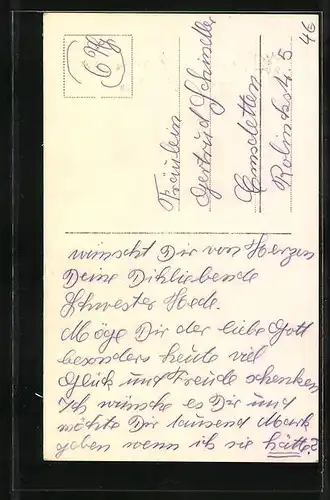 46
Fräulein
Gertrud Schindler
Emsdetten
Rolinckstr. 5
wünscht Dir von Herzen
Deine Dichliebende
Schwester Hede.
Möge Dir der liebe Gott
besonders heute viel
Glück und Freude schenken
Ich wünsche es Dir und
möchte Dir tausend Mark
geben wenn ich sie hätte?